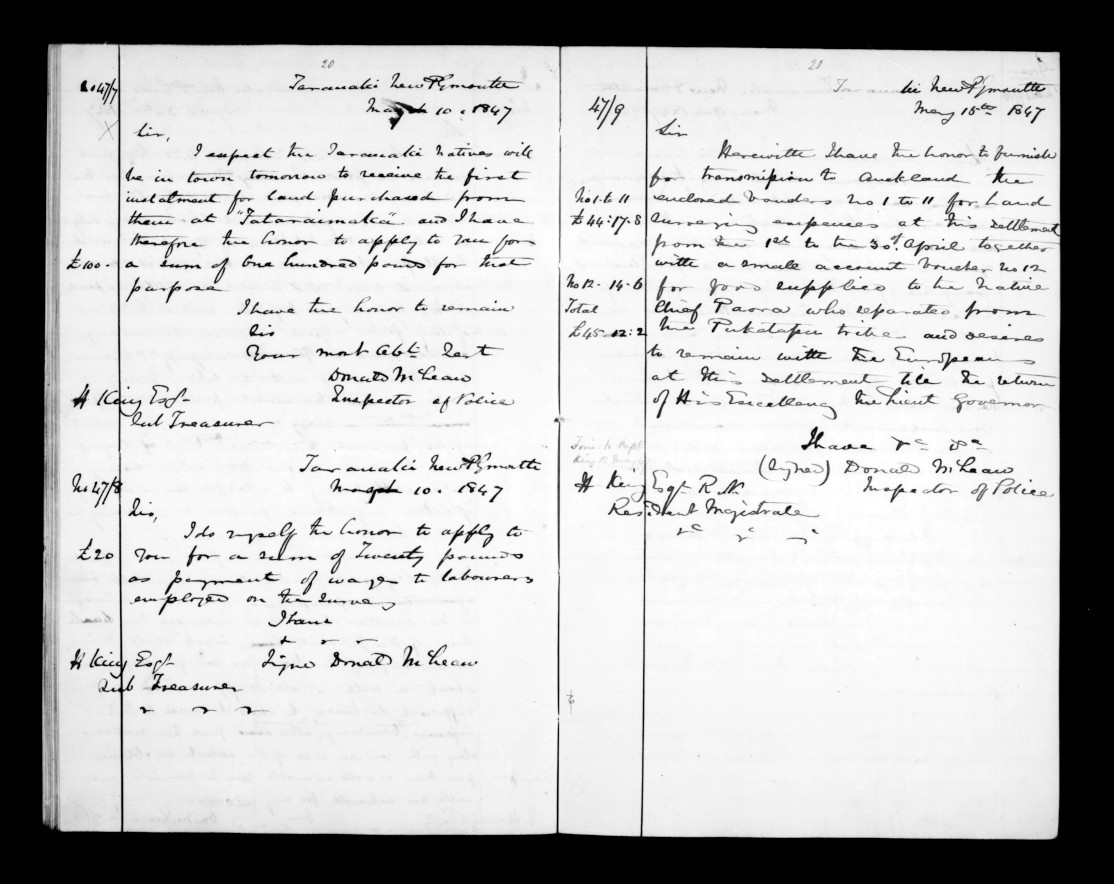 20
No 47/7
Taranaki New Plymouth
May 10. 1847
Sir,
I expect the Taranaki Natives will
be in town tomorrow to receive the first
instalment for land purchased from
them at "Tataraimaka" and I have
therefore the honor to apply to You for
£100- a sum of One hundred pounds for that
purpose
I have the honor to remain
Sir
Your most Obt. Sert
Donald McLean
H King Esqr Inspector of Police
Sub Treasurer
Taranaki New Plymouth
No 47/8 May 10. 1847
Sir,
I do myself the honor to apply to
£20 You for a sum of Twenty pounds
as payment of wages to labourers
employed on the Survey
I have
H King Esqr Signed Donald McLean
Sub Treasurer
21
Taranaki New Plymouth
47/9 May 15th 1847
Sir
Herewith I have the honor to furnish
for transmission to Auckland the
No 1 to 11 enclosed Vouchers No 1 to 11 for Land
£44:17.8 Surveying expenses at this Settlement
from the 1st to the 30th April together
with a small account Voucher No 12
No 12 - 14-6 for food supplies to the Native
Total Chief Paora who separated from
£45-12:2 the Puketapu tribe and desires
to remain with the Europeans
at this Settlement till the return
of His Excellency the Lieut Governor.
I have &c &c
(Signed) Donald McLean
H King Esqr R.N. Inspector of Police
Resident Magistrate